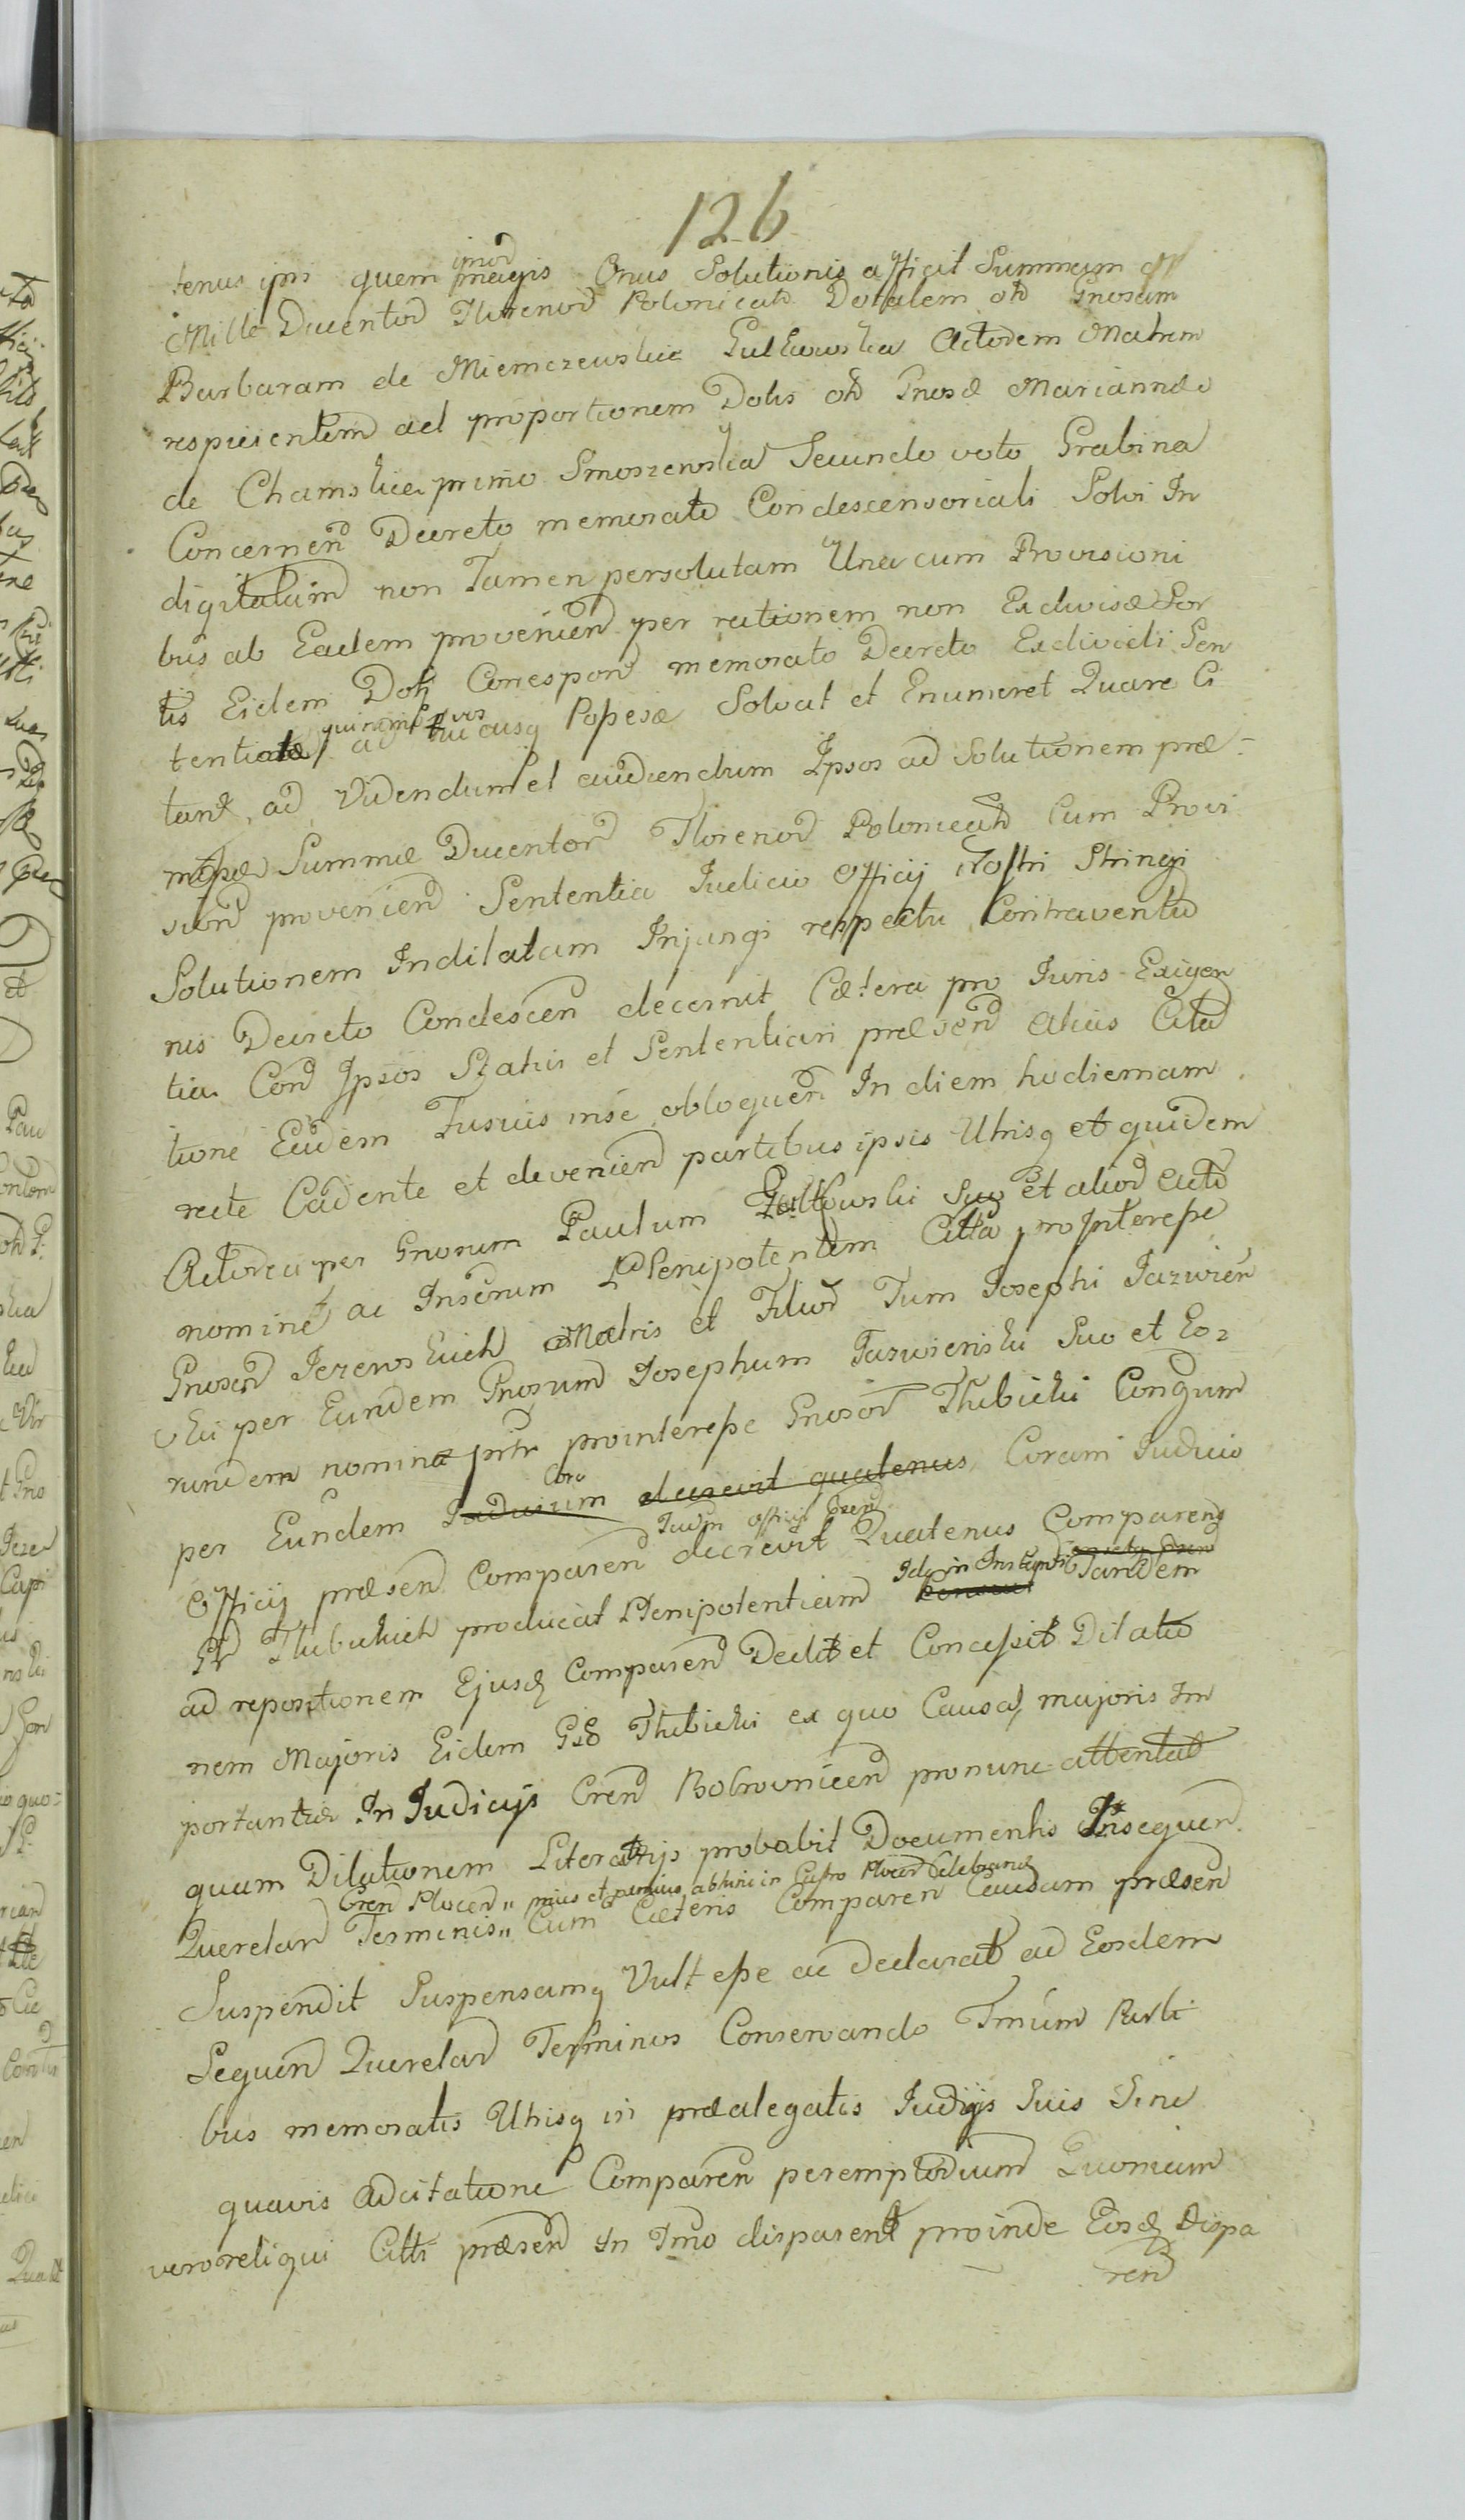 126
imod
tenus ipsi quem magis Onus Solutionis afficit Summam
Mille Ducentod Florenod Polonicad Dotalem od Gnosam
Barbaram de Niemczewskie Gulkowska Actodem Matrem
respicientem ad proportionem Dotis od Gnosæ Mariannæ
de Chamskie primo Smoszewska Secundo voto Grabina
Concernen Decreto memorato Condescensoriali Solvi In
digitatam non Tamen persolutam Una cum Provisioni
bus ab Eadem provenien per rationem non Exdivisæ Sor
tis Eidem Doti Correspon memorato Decreto Exdividi Sen
tentiatæ ad huc usq Possessæ Solvat et Enumeret Quare Ci
tant ad Videndum et audiendum Ipsos ad Solutionem præ
missæ Summæ Ducentor Florenod Polonicad Cum Provi
sion provenien Sententia Iudicio Officij Nostri Stringi
Solutionem Indilatam Injungi respectu Contraventio
nis Decreto Condescen decernit Cætera pro Iuris Exigen
tia Con Ipsos Statui et Sententiari præsen Alias Citad
tione Eadem Fusius in se obloquen In diem hodiernam
recte Cadente et devenien partibus ipsis Utrisq et quidem
Actorea per Gnosum Paulum Gulkowski Suo et aliod Actod
nomine ac Inserum Plenipotentem Citta pro Interesse
Gnosod Jezewskich Matris et Filiod Tum Josephi Jazwien
ski per Eundem Gnosum Josephum Jazwienski Suo et Eo
rundem nomine pntr pro interesse Gnosod Thlubicki Congrum
Coro
per Eundem Iudicium decrevit quatenus Coram Iudicio
Iudm officij Cren
Officij præsen Comparen decrevit Quatenus Comparens
Idq in Instanti
Gd Tlubickich producat Plenipotentiam Tandem
ad repositionem Ejusd Comparen Dedit et Concessit Dilatio
nem Majoris Eidem Thlubicki ex quo Causa majoris Im
portantiæ In Iudicijs Cren Bobrownicen pro nunc attentat
quam Dilationem Literatorijs probabit Documentis Insequen
Cren Plocen
Querelar Terminis Cum Cæteris Comparen Causam præsen
Suspendit Suspensamq Vult esse ac declarat ad Eosdem
Sequen Querelar Terminos Conservando Tmum Parti
bus memoratis Utrisq in præalegatis Iudijs Suis Sine
quavis Adcitatione Comparen peremptorium Quoniam
vero reliqui Citti præsen In Tmo disparent proinde Eosd Dispa
ren